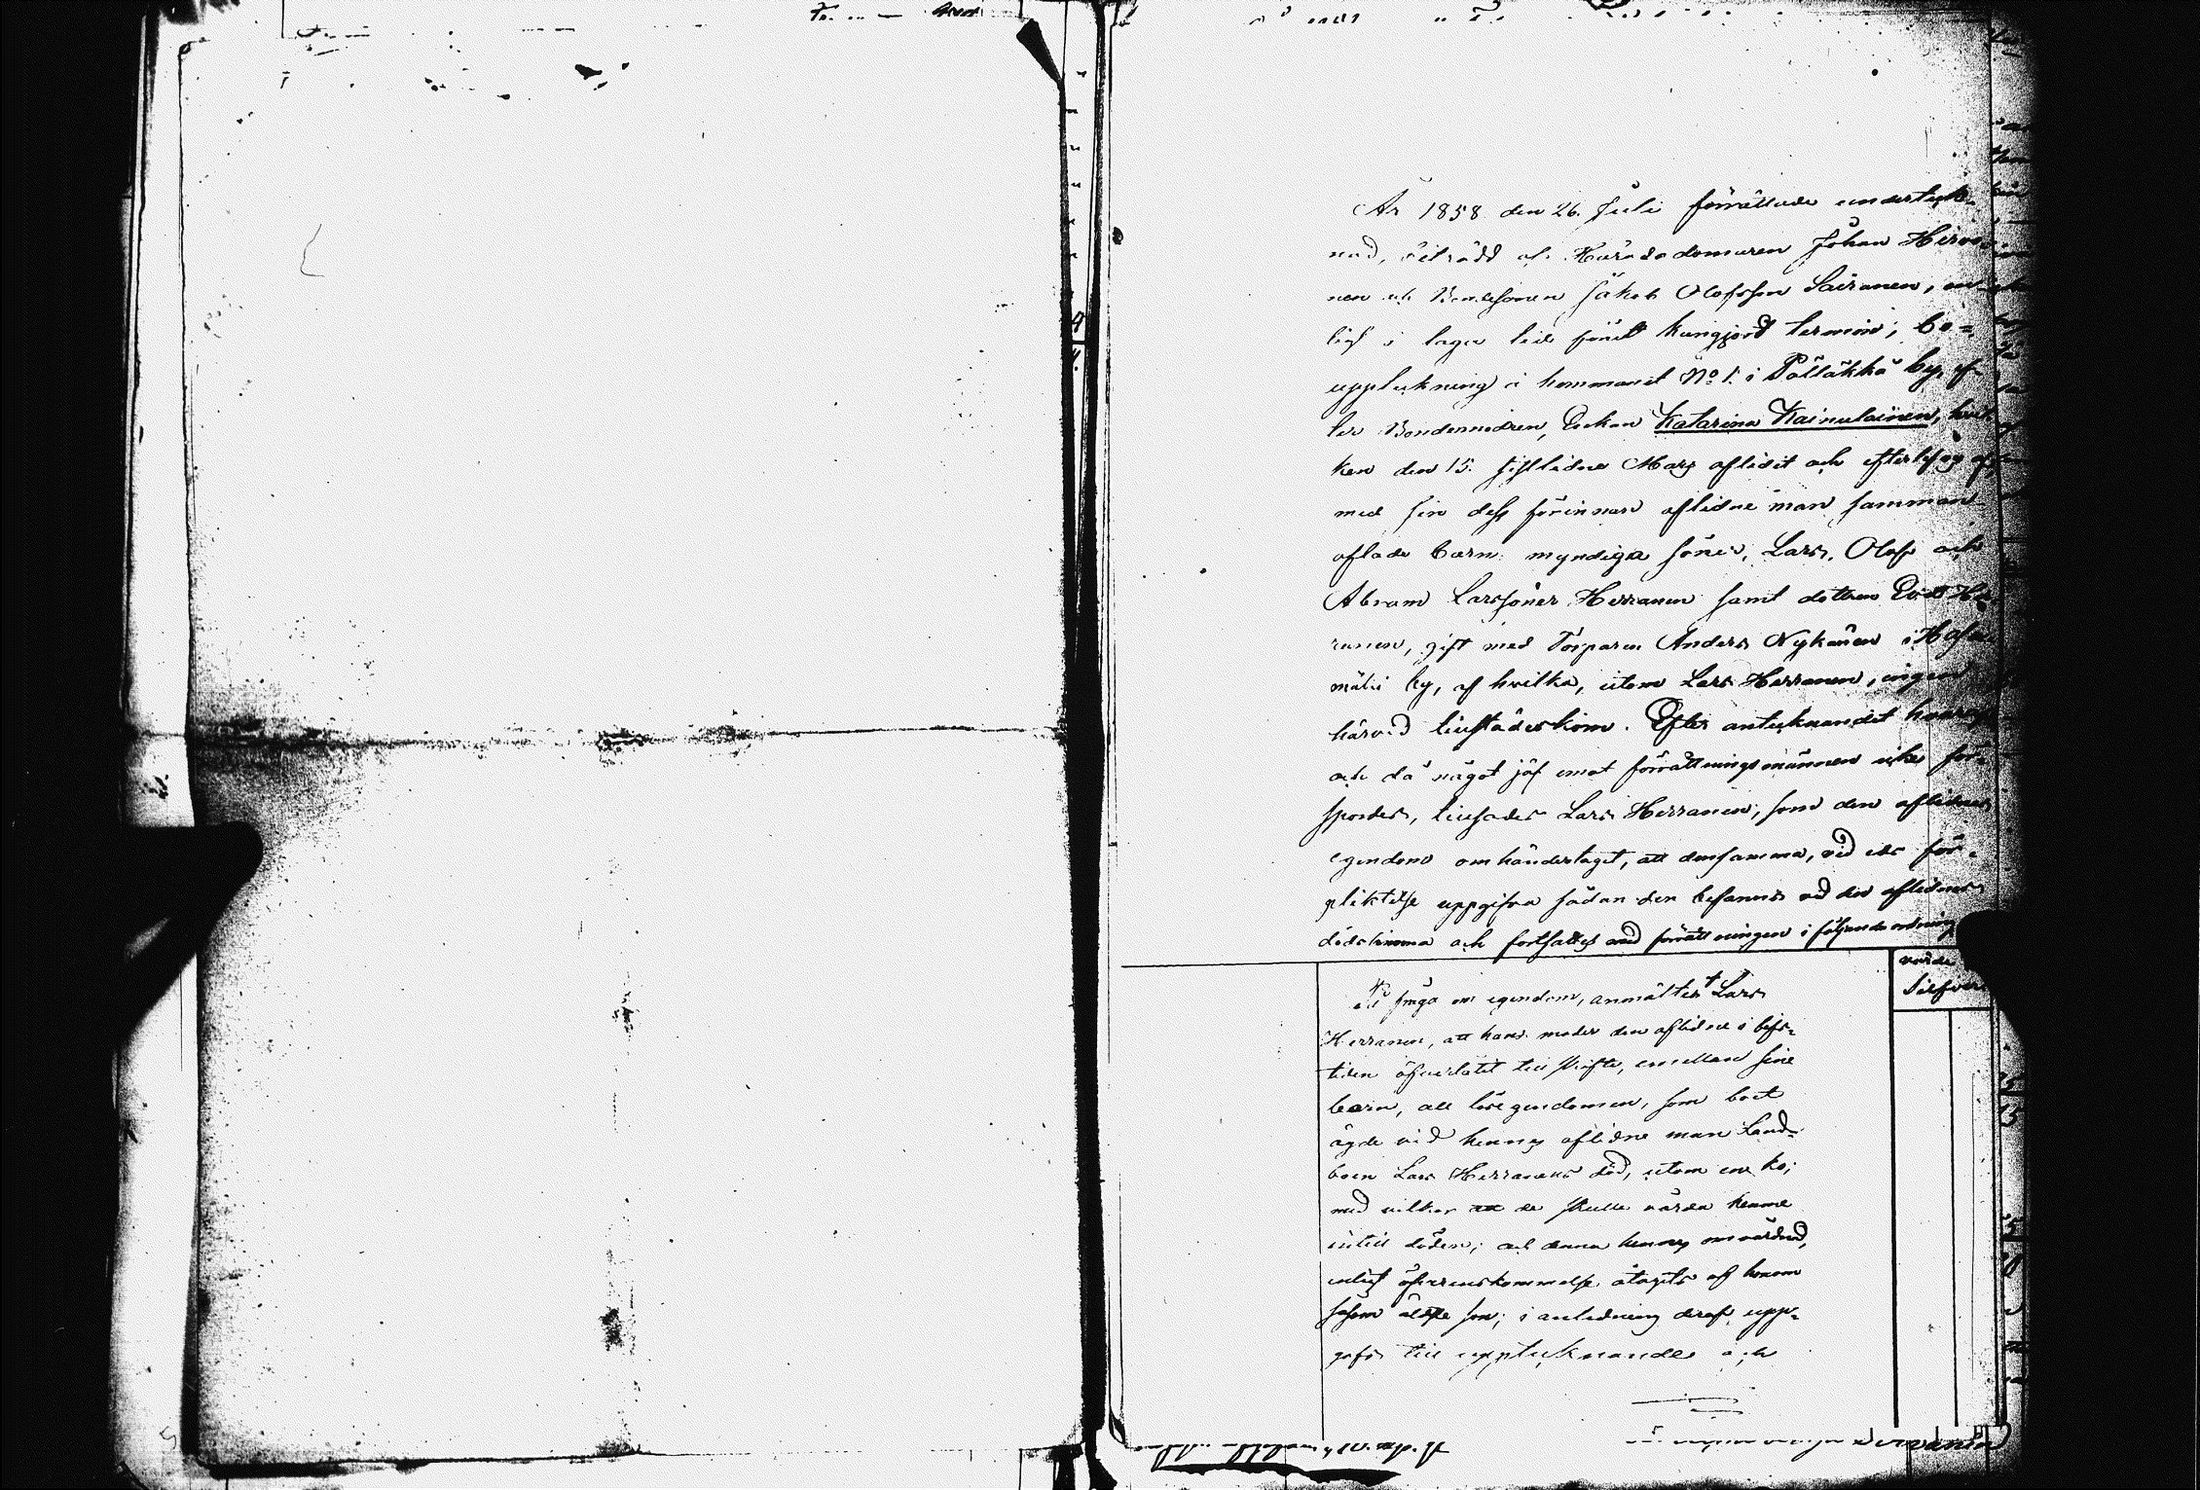 År 1858 den 26. Juli förrättade underteck-
nad, biträdd af Häradsdomaren Johan Hirvo-
nen och Bondesonen Jakob Olofsson Sairanen, en-
ligt i laga tid förut kungjord termin, bo=
uppteckning i hemmanet No 1. i Pölläkkä by, ef-
ter Bondemodren, Enkan Katarina Kainulainen, hvil-
ken den 15. sistlidne Mars aflidit och efterlefvas af
med sin dess förinnan aflidne man samman-
aflade barn: myndiga söner, Lars, Olof och
Abram Larssöner Herranen samt dottren Herr-
ranen, gift med Torparen Anders Nykänen i
mäki by, af hvilka, utom Lars Herranen, ingen
härvid tillstädeskom. Efter antecknandet häraf
och då något jäf emot förrättningsmännen icke för-
spordes, tillsades Lars Herranen, som den aflidnas
egendom omhändertagit, att densamma, vid eds för-
pliktelse uppgifva sådan den befanns vid den aflidnas
dödstimma och fortsattes med förrättningen i följande ordning
värde
Silfver
På fråga om egendom, anmälte Lars
Herranen, att hans moder den aflidne i lifs-
tiden öfverlåtit till skifte, emellan sine
barn, all lösegendomen, som boet
ägde vid hennes aflidne man Land-
boen Lars Herranens död, utom en ko;
med vilkor att de skulle vårda henne
intill döden; och denna hennes omvårdnad,
enligt öfverenskommelse åtagits af honom
såsom äldste son; i anledning deraf upp-
gafs till upptecknande och